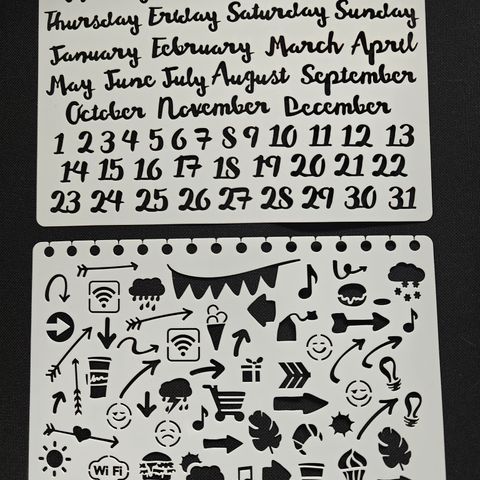 Thursday Friday Saturday Sunday
January February March April
May June July August September
October November December
1 2 3 4 5 6 7 8 9 10 11 12 13
14 15 16 17 18 19 20 21 22
23 24 25 26 27 28 29 30 31
Wi Fi